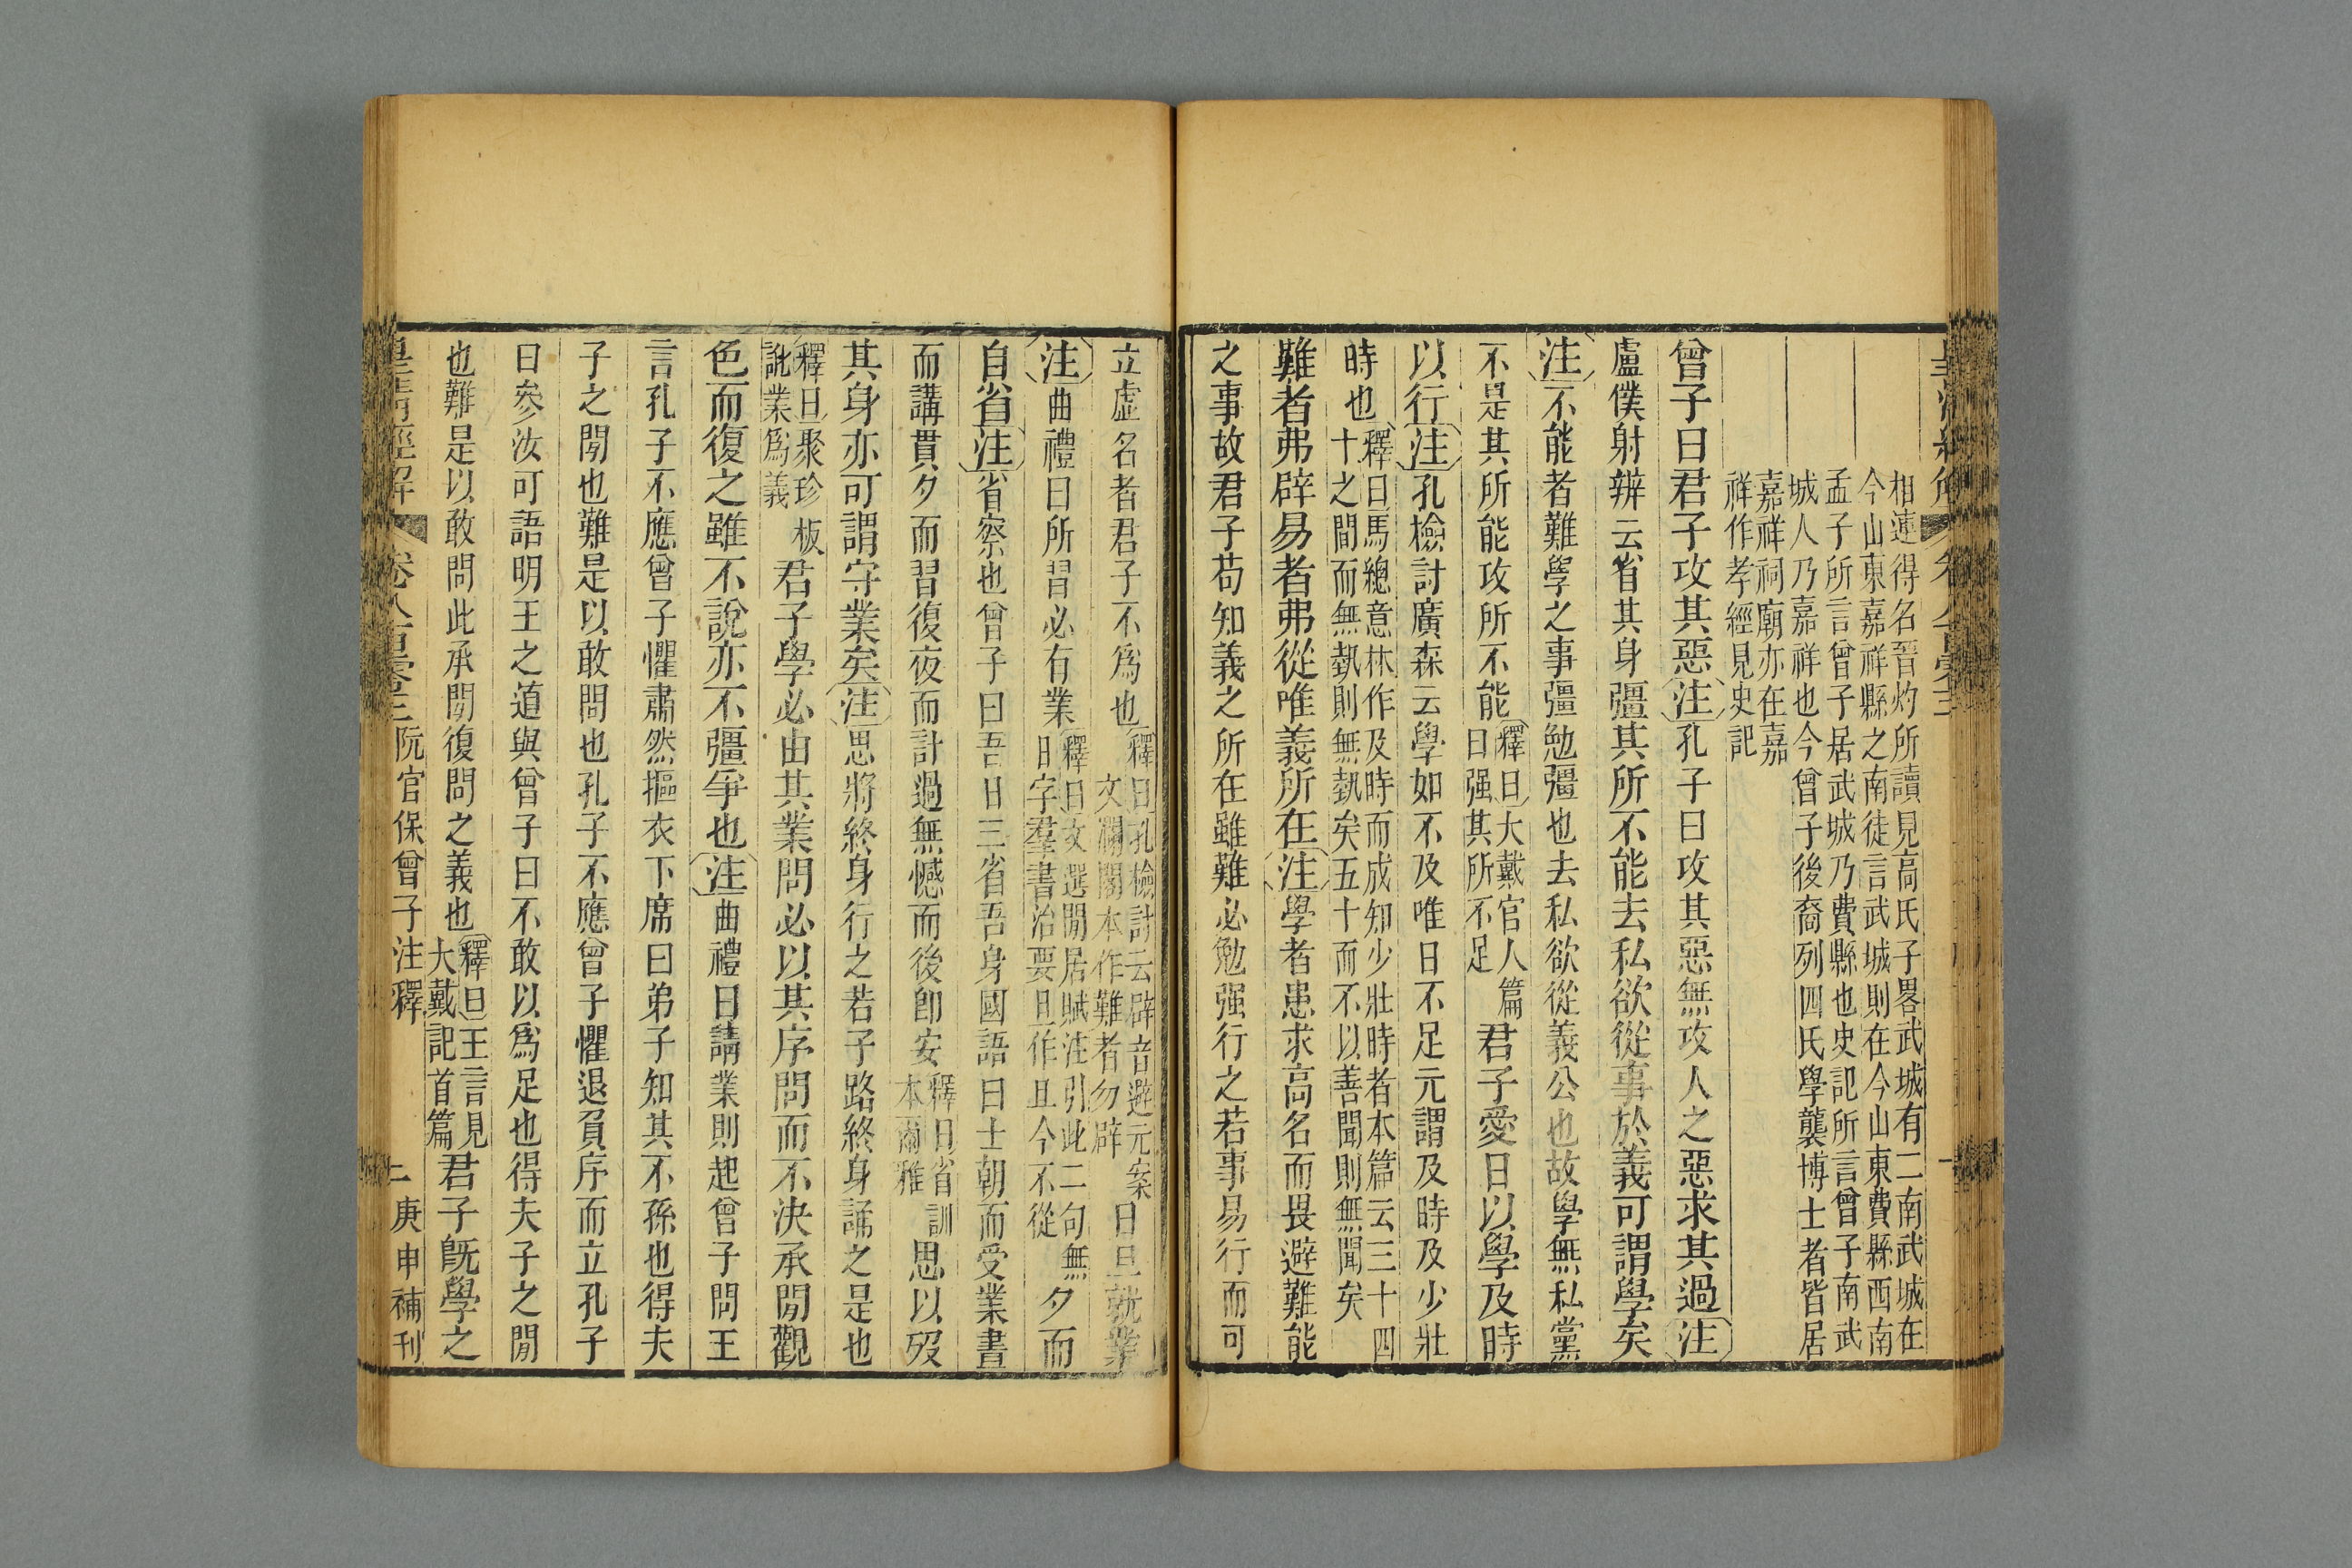 皇清經解 卷八百零三 二
相連得名晉灼所讀見高氏子畧武城有二南武城在
今山東嘉祥縣之南徒言武城則在今山東費縣西南
孟子所言曾子居武城乃費縣也史記所言曾子南武
城人乃嘉祥也今曾子後裔列四氏學襲博士者皆居
嘉祥祠廟亦在嘉
祥作孝經見史記
曾子曰君子攻其惡注孔子曰攻其惡無攻人之惡求其過注
盧僕射辨云省其身彊其所不能去私欲從事於義可謂學矣
注不能者難學之事彊勉彊也去私欲從義公也故學無私黨
不是其所能攻所不能釋曰大戴官人篇曰强其所不足君子愛日以學及時
以行注孔檢討廣森云學如不及唯日不足元謂及時及少壯
時也釋曰馬總意林作及時而成知少壯時者本篇云三十四十之間而無埶則無埶矣五十而不以善聞則無聞矣
難者弗辟易者弗從唯義所在注學者患求高名而畏避難能
之事故君子苟知義之所在雖難必勉强行之若事易行而可
立虛名者君子不爲也釋曰孔檢討云辟音避元案文瀾閣本作難者勿辟日旦就業
注曲禮曰所習必有業釋曰文選閒居賦注引此二句無日字羣書治要旦作且今不從夕而
自省注省察也曾子曰吾日三省吾身國語曰士朝而受業晝
而講貫夕而習復夜而計過無憾而後卽安釋曰省訓本爾雅思以歿
其身亦可謂守業矣注思將終身行之若子路終身誦之是也
釋曰聚珍板訛業爲義君子學必由其業問必以其序問而不決承閒觀
色而復之雖不說亦不彊爭也注曲禮曰請業則起曾子問王
言孔子不應曾子懼肅然摳衣下席曰弟子知其不孫也得夫
子之閒也難是以敢問也孔子不應曾子懼退負序而立孔子
曰參汝可語明王之道與曾子曰不敢以爲足也得夫子之閒
也難是以敢問此承閒復問之義也釋曰王言見大戴記首篇君子旣學之
皇清經解 卷八百零三 阮宫保曾子注釋 二 庚申補刊